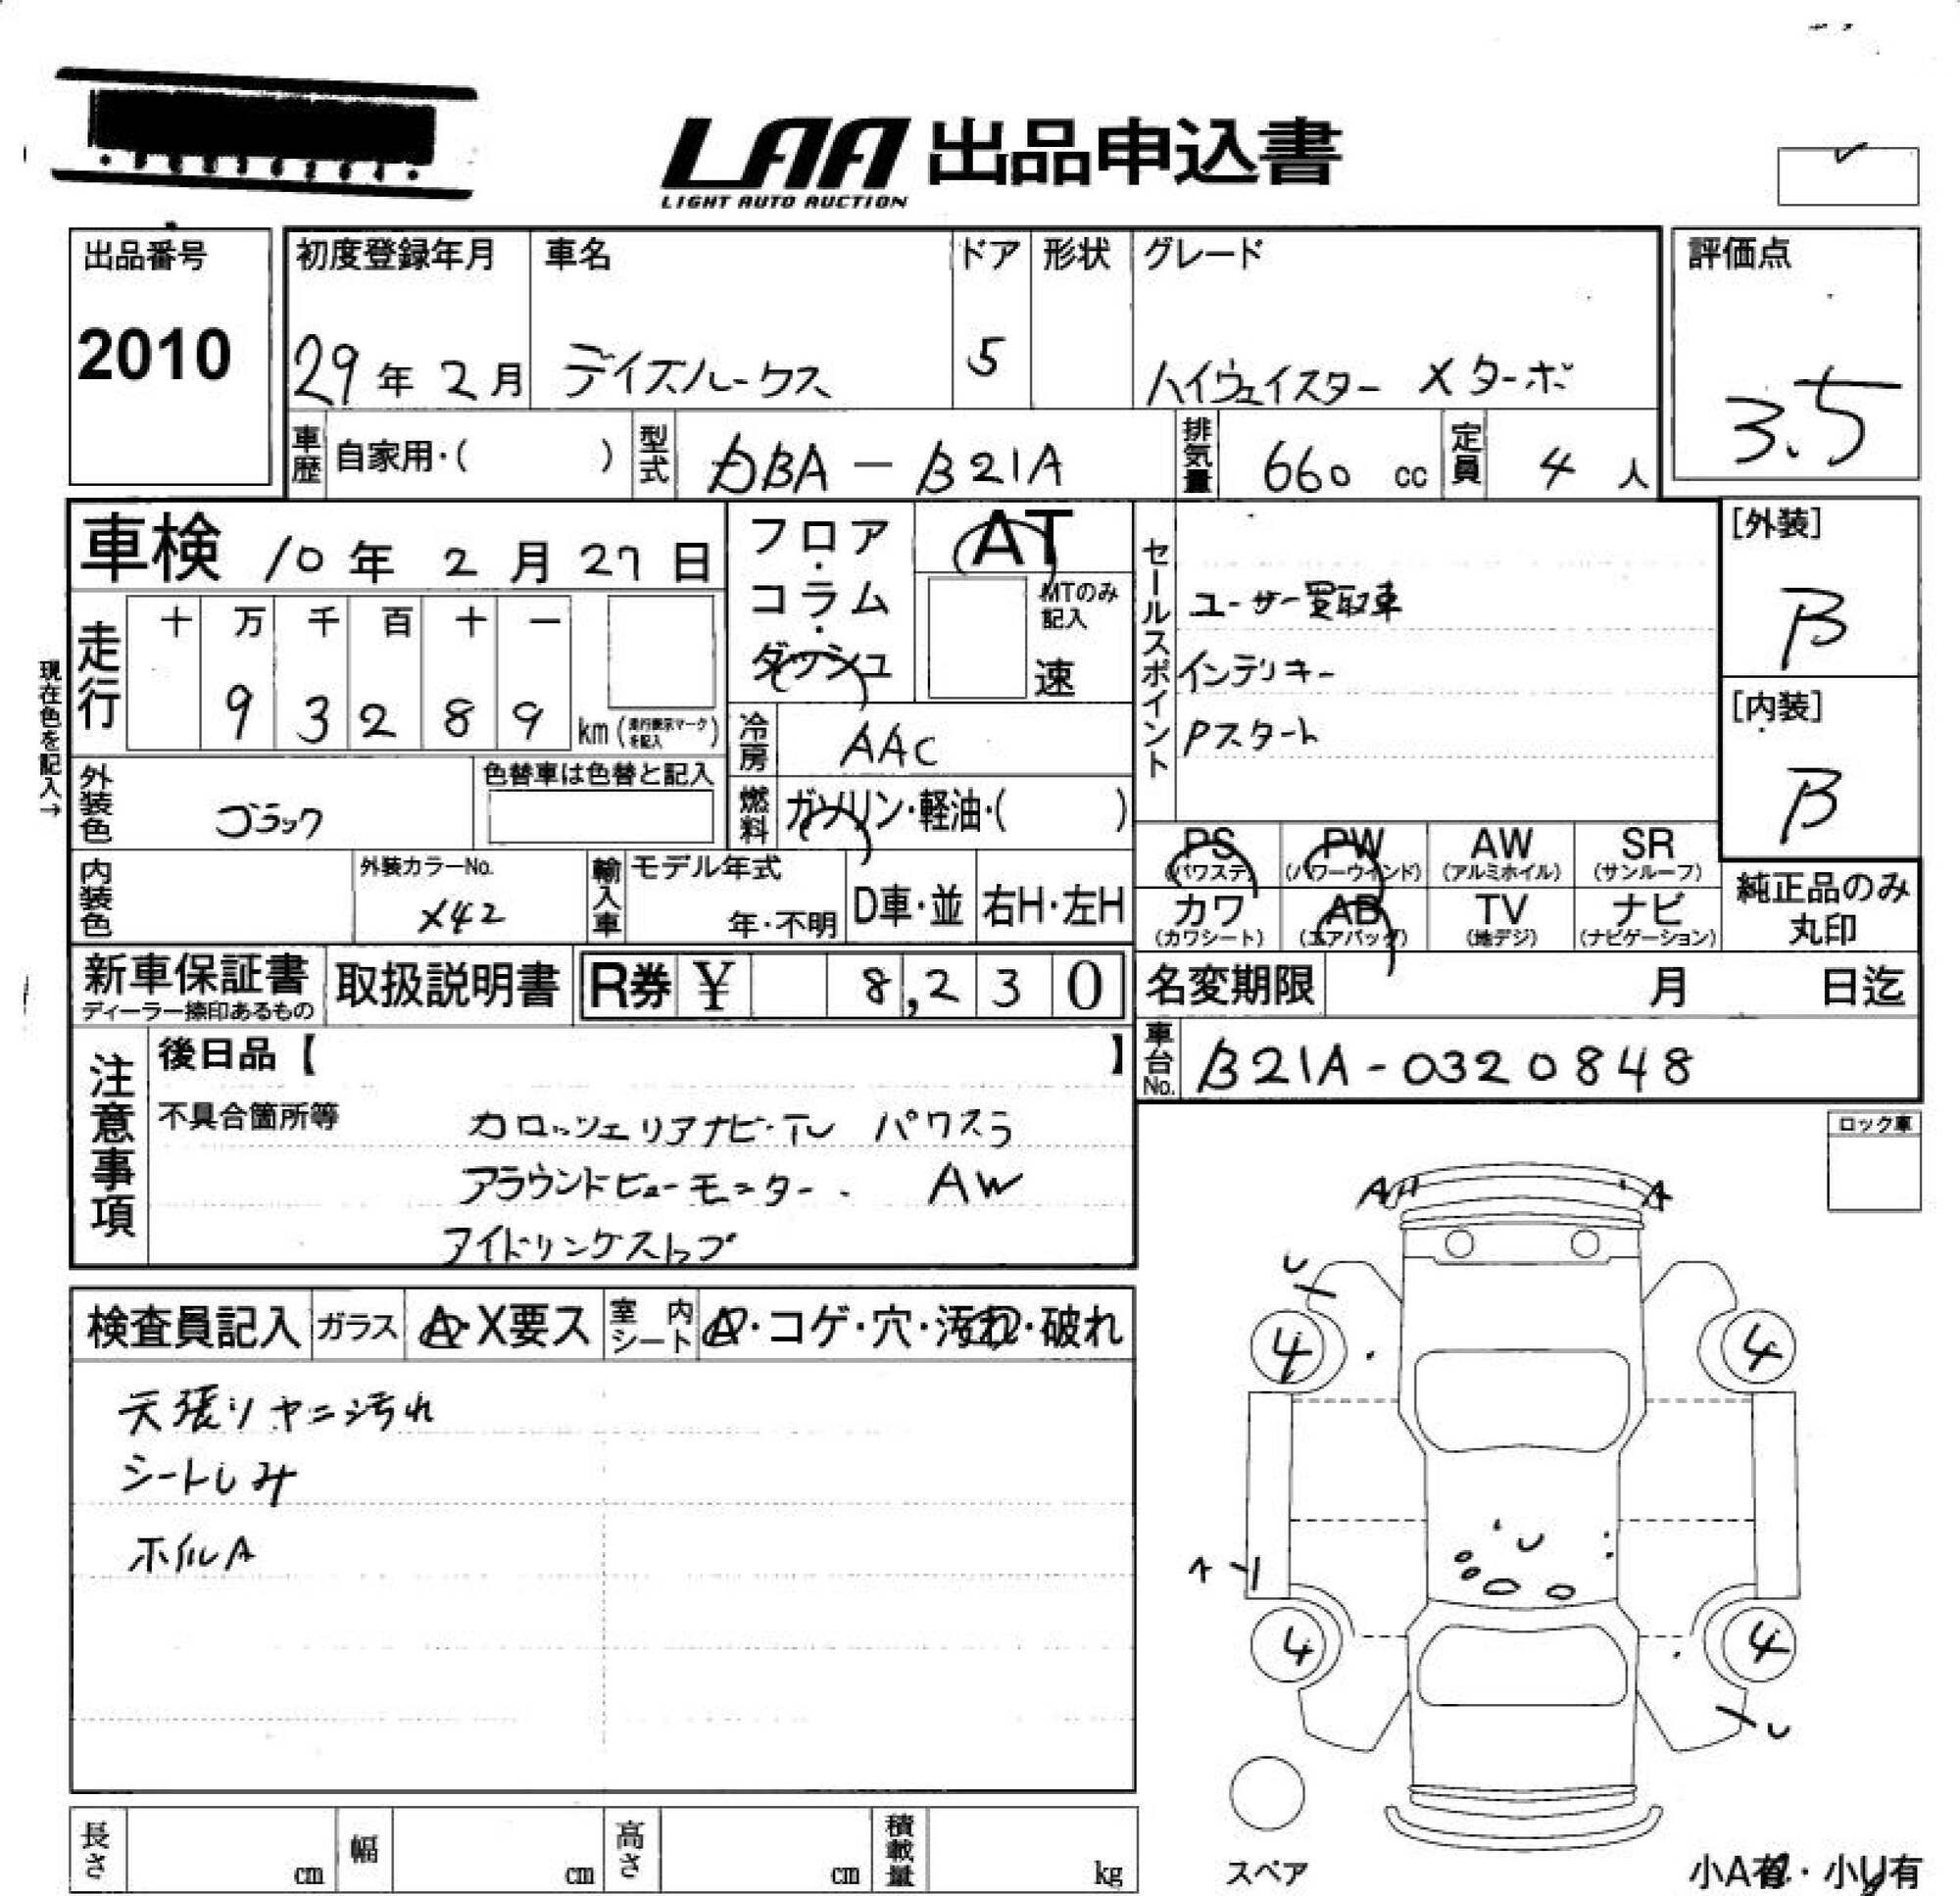 LAA 出品申込書
LIGHT AUTO AUCTION
出品番号
2010
初度登録年月
29年 2月
車名
デイズルークス
ドア
5
形状
グレード
ハイウェイスター Xターボ
評価点
3.5
車歴
自家用・( )
型式
DBA - B21A
排気量
660 cc
定員
4 人
車検 10年 2月 27日
フロア・コラム・ダッシュ
AT
MTのみ記入
速
セールスポイント
ユーザー買取車
インテリキー
Pスタート
[外装]
B
[内装]
B
現在色を記入→
走行
十 万 千 百 十 一
9 3 2 8 9 km (走行表示マークを記入)
冷房
AAC
外装色
ブラック
色替車は色替と記入
燃料
ガソリン・軽油・( )
PS (パワステ)
PW (パワーウインド)
AW (アルミホイル)
SR (サンルーフ)
カワ (カワシート)
AB (エアバッグ)
TV (地デジ)
ナビ (ナビゲーション)
純正品のみ丸印
内装色
外装カラーNo.
X42
輸入車
モデル年式
年・不明
D車・並
右H・左H
新車保証書
ディーラー捺印あるもの
取扱説明書
R券 ¥ 8,230
名変期限 月 日迄
車台No.
B21A-0320848
注意事項
後日品【 】
不具合箇所等
カロッツェリアナビ・TV パワスラ
アラウンドビューモニター. AW
アイドリングストップ
ロック車
検査員記入
ガラス
A・X要ス
室内シート
A・コゲ・穴・汚れ・破れ
天張リヤニ汚れ
シートしみ
ホイルA
A
A
U
4
4
U
A
4
4
U
スペア
長さ cm
幅 cm
高さ cm
積載量 kg
小A有・小U有